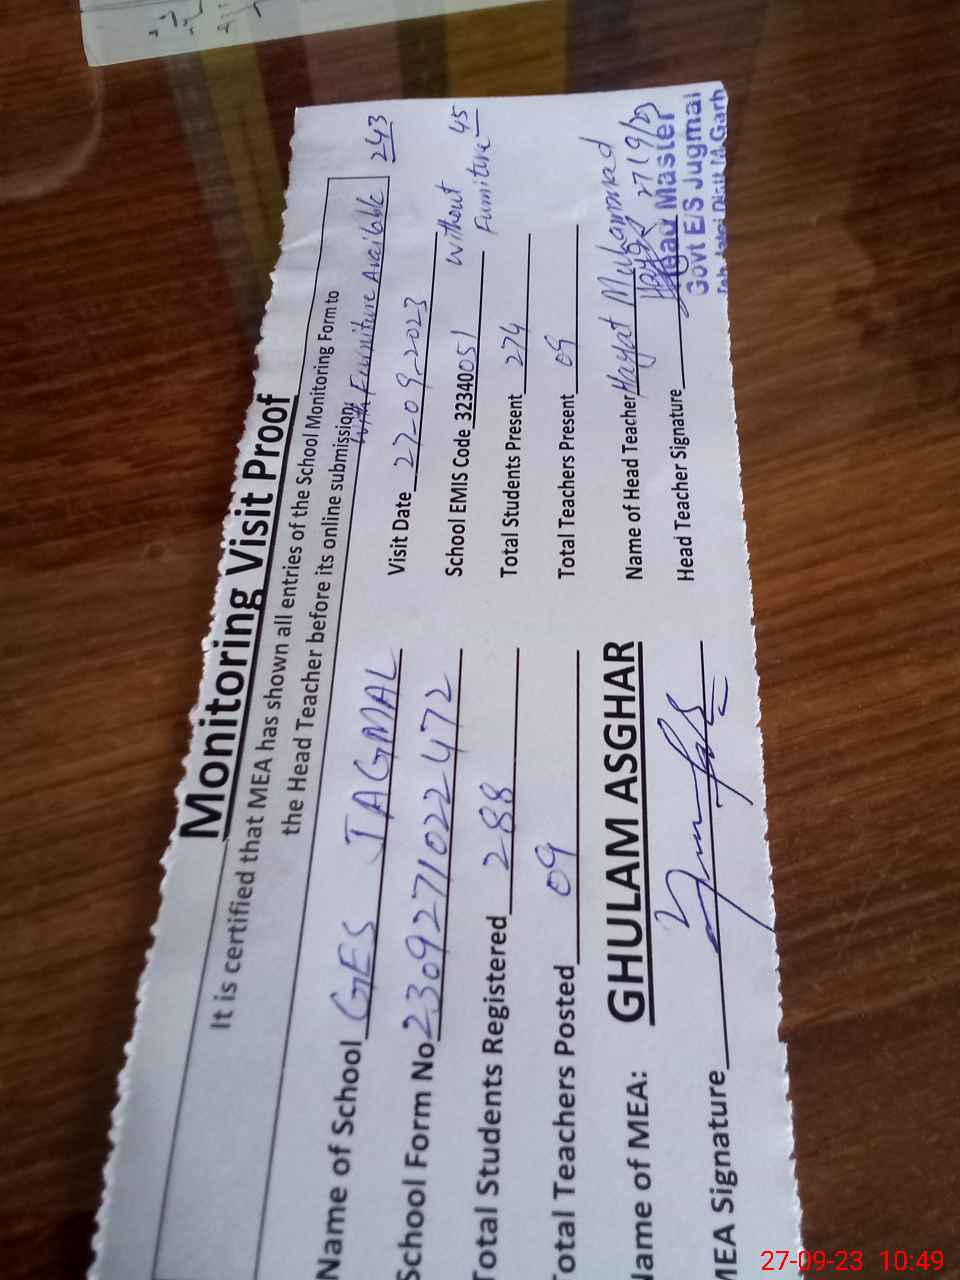 Monitoring Visit Proof
It is certified that MEA has shown all entries of the School Monitoring Form to
the Head Teacher before its online submission.
With Furniture Available 243
Without Furniture 45
Name of School GES JAGMAL
Visit Date 27-09-2023
School Form No 2309271022472
School EMIS Code 32340051
Total Students Registered 288
Total Students Present 274
Total Teachers Posted 09
Total Teachers Present 09
Name of MEA: GHULAM ASGHAR
Name of Head Teacher Hayat Muhammad
MEA Signature
Head Teacher Signature
27/9/23
Head Master
Govt E/S Jugmal
27-09-23 10:49